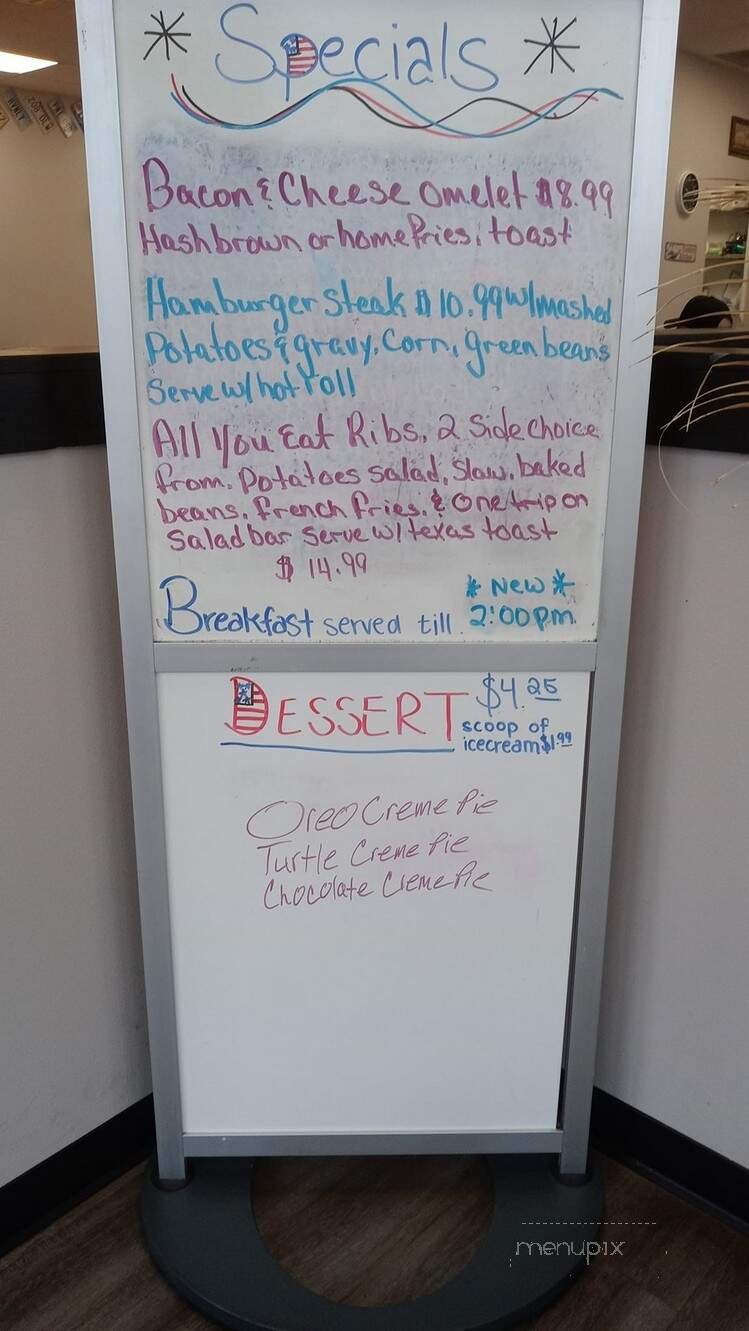 Specials
Bacon & Cheese omelet $8.99
Hashbrown or homefries, toast
Hamburger Steak $10.99 w/mashed
Potatoes & gravy, Corn, green beans
Serve w/hot roll
All You Eat Ribs, 2 Side Choice
from, Potatoes salad, Slaw, baked
beans, french fries, & One trip on
Salad bar serve w/texas toast
$ 14.99
* New *
Breakfast served till 2:00pm
DESSERT $4.25
scoop of
icecream $1.99
Oreo Creme Pie
Turtle Creme Pie
Chocolate Creme Pie
menupix